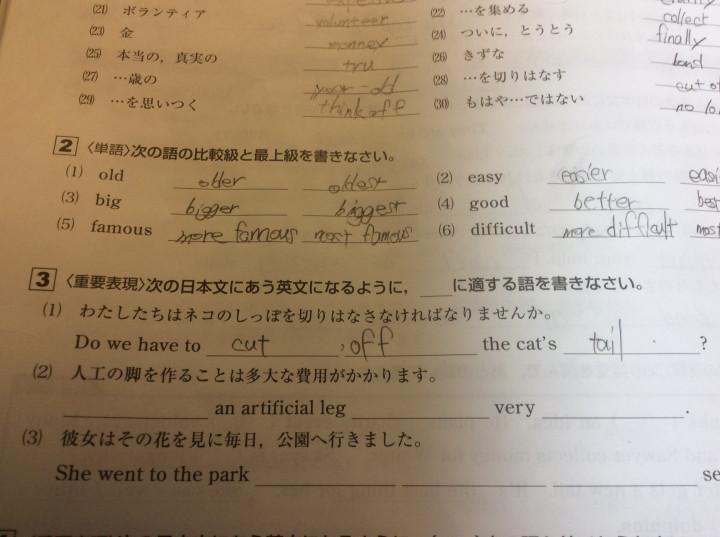 (21) ボランティア volunteer (22) …を集める collect
(23) 金 monney (24) ついに，とうとう finally
(25) 本当の，真実の tru (26) きずな bond
(27) …歳の year-old (28) …を切りはなす cut of
(29) …を思いつく think off (30) もはや…ではない no lo
2 〈単語〉次の語の比較級と最上級を書きなさい。
(1) old older oldest (2) easy easier easi
(3) big bigger biggest (4) good better best
(5) famous more famous most famous (6) difficult more difficult most
3 〈重要表現〉次の日本文にあう英文になるように，___に適する語を書きなさい。
(1) わたしたちはネコのしっぽを切りはなさなければなりませんか。
Do we have to cut , off the cat's tail ?
(2) 人工の脚を作ることは多大な費用がかかります。
___ an artificial leg ___ very ___.
(3) 彼女はその花を見に毎日，公園へ行きました。
She went to the park ___ ___ se